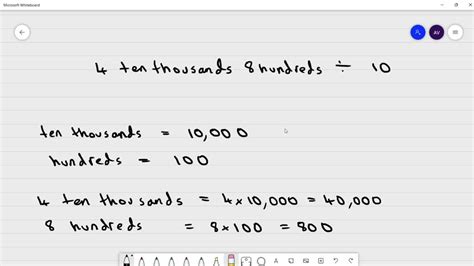 Microsoft Whiteboard
AV
4 ten thousands 8 hundreds ÷ 10
ten thousands = 10,000
hundreds = 100
4 ten thousands = 4×10,000 = 40,000
8 hundreds = 8×100 = 800